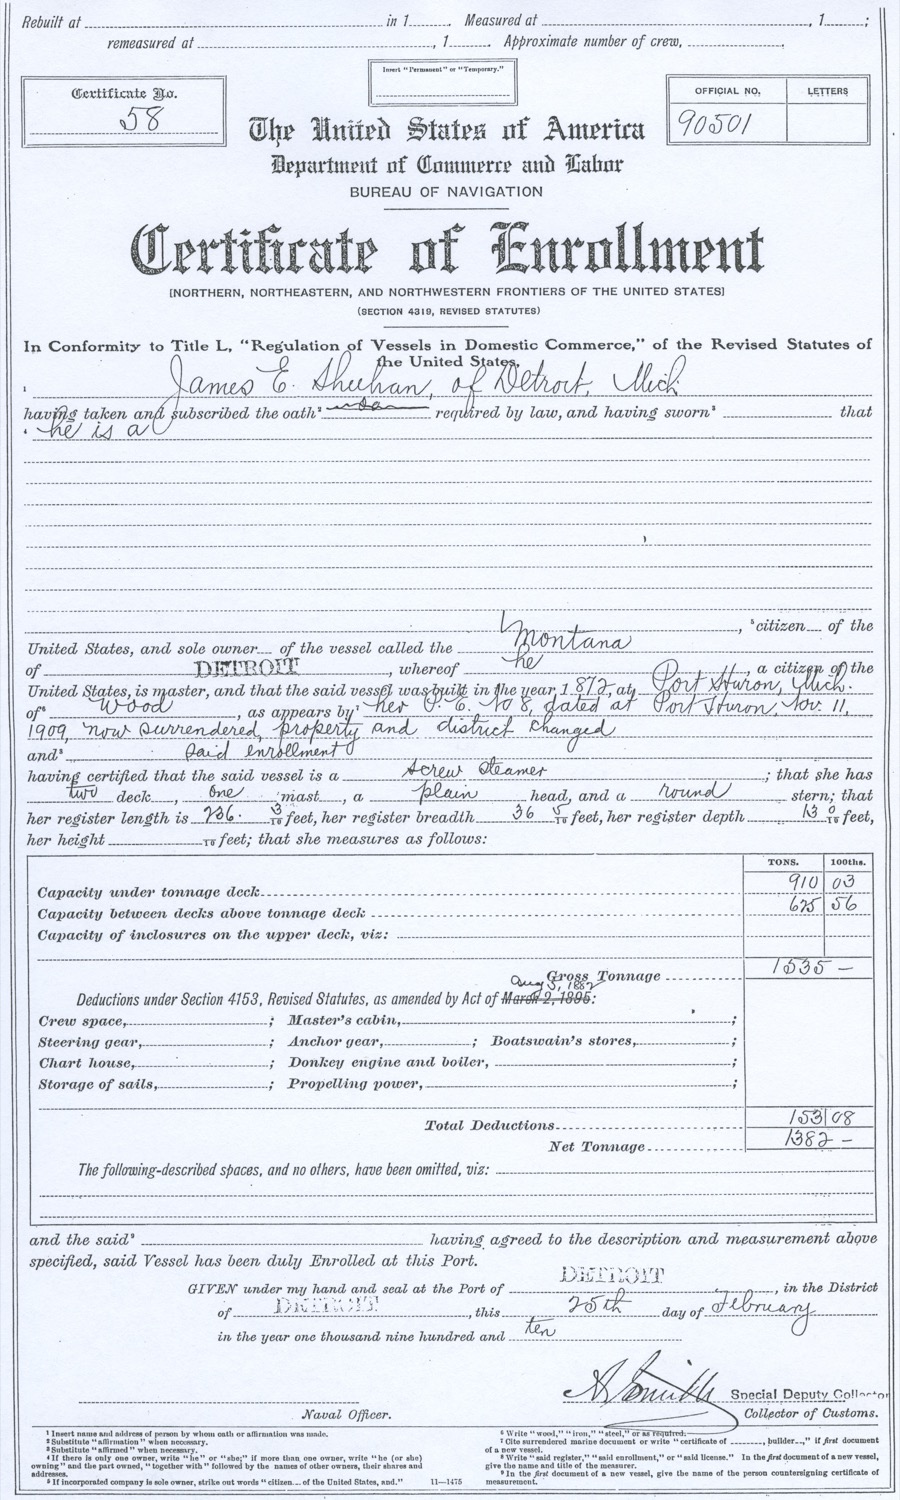 Rebuilt at in 1 . Measured at , 1 ;
remeasured at , 1 . Approximate number of crew, .
Insert "Permanent" or "Temporary."
Certificate No.
58
OFFICIAL NO. LETTERS
90501
The United States of America
Department of Commerce and Labor
BUREAU OF NAVIGATION
Certificate of Enrollment
[NORTHERN, NORTHEASTERN, AND NORTHWESTERN FRONTIERS OF THE UNITED STATES]
(SECTION 4319, REVISED STATUTES)
In Conformity to Title L, "Regulation of Vessels in Domestic Commerce," of the Revised Statutes of
the United States,
1 James E. Sheehan, of Detroit, Mich
having taken and subscribed the oath2 required by law, and having sworn3 that
4 he is a
, 5citizen of the
United States, and sole owner of the vessel called the Montana
of DETROIT, whereof he, a citizen of the
United States, is master, and that the said vessel was built in the year 1872, at Port Huron, Mich.
of6 Wood, as appears by7 her P. E. No 8, dated at Port Huron, Nov. 11,
1909, now surrendered, property and district changed
and8 said enrollment
having certified that the said vessel is a Screw Steamer; that she has
two deck , one mast , a plain head, and a round stern; that
her register length is 236. 3/10 feet, her register breadth 36 5/10 feet, her register depth 13 0/10 feet,
her height /10 feet; that she measures as follows:
TONS. 100ths.
Capacity under tonnage deck 910 03
Capacity between decks above tonnage deck 625 56
Capacity of inclosures on the upper deck, viz:
Gross Tonnage 1535 —
Aug 5, 1882
Deductions under Section 4153, Revised Statutes, as amended by Act of March 2, 1895:
Crew space, ; Master's cabin, ;
Steering gear, ; Anchor gear, ; Boatswain's stores, ;
Chart house, ; Donkey engine and boiler, ;
Storage of sails, ; Propelling power, ;
Total Deductions 153 08
Net Tonnage 1382 —
The following-described spaces, and no others, have been omitted, viz:
and the said9 having agreed to the description and measurement above
specified, said Vessel has been duly Enrolled at this Port.
GIVEN under my hand and seal at the Port of DETROIT, in the District
of DETROIT, this 25th day of February
in the year one thousand nine hundred and ten
Special Deputy Collector
Naval Officer. Collector of Customs.
1 Insert name and address of person by whom oath or affirmation was made.
2 Substitute "affirmation" when necessary.
3 Substitute "affirmed" when necessary.
4 If there is only one owner, write "he" or "she;" if more than one owner, write "he (or she)
owning" and the part owned, "together with" followed by the names of other owners, their shares and
addresses.
5 If incorporated company is sole owner, strike out words "citizen of the United States, and." 11—1475
6 Write "wood," "iron," "steel," or as required.
7 Cite surrendered marine document or write "certificate of , builder ," if first document
of a new vessel.
8 Write "said register," "said enrollment," or "said license." In the first document of a new vessel,
give the name and title of the measurer.
9 In the first document of a new vessel, give the name of the person countersigning certificate of
measurement.